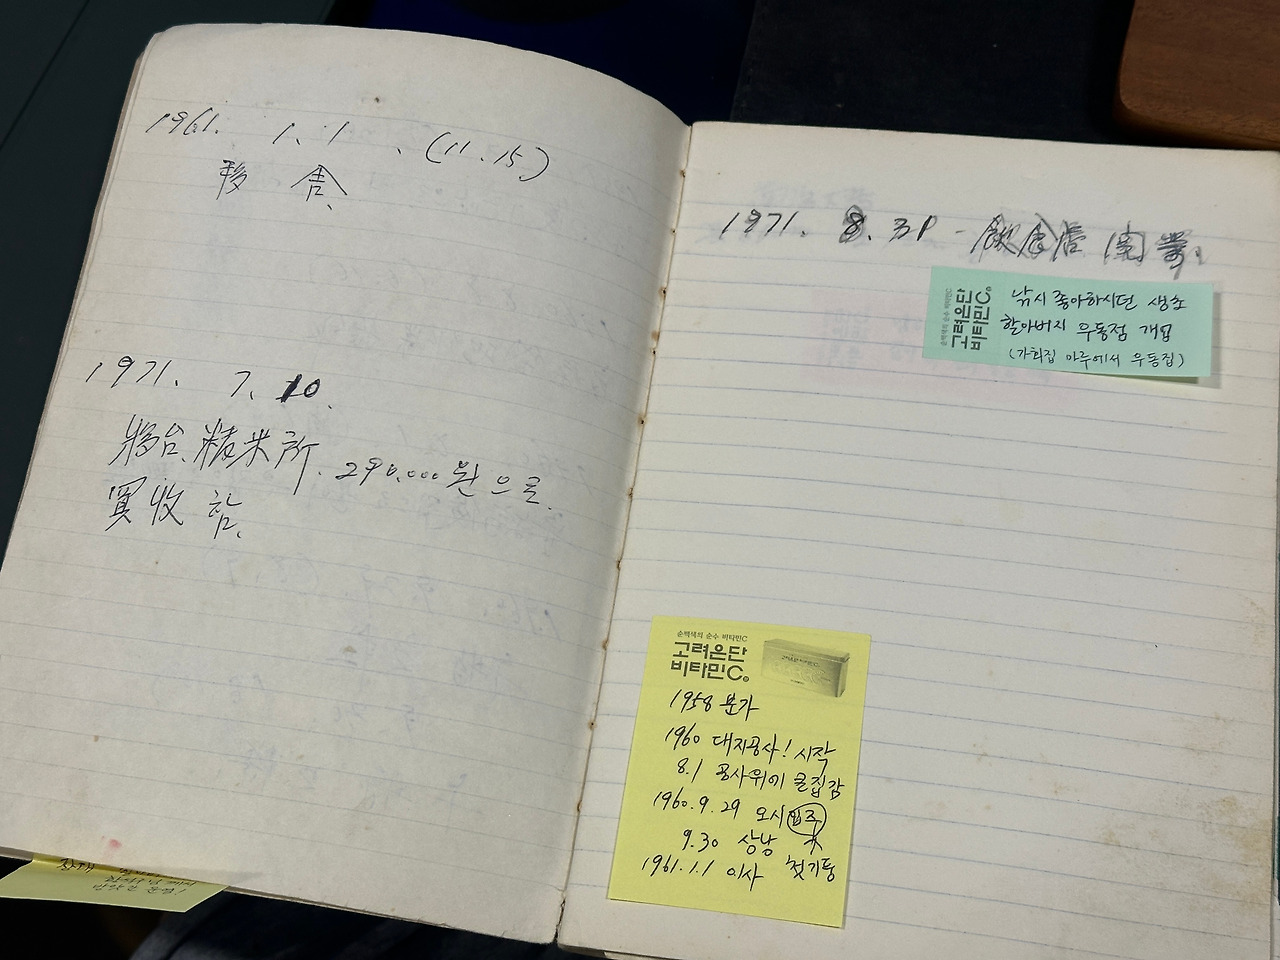 1961. 1. 1. (11. 15.)
移舍.
1971. 7. 10.
將台. 精米所. 290,000원으로.
買收함.
1971. 8. 31 - 飮食店 開業.
순백색의 순수 비타민C
고려은단
비타민C
낚시 좋아하시던 생소
할아버지 우동점 개업
(가회집 마루에서 우동집)
순백색의 순수 비타민C
고려은단
비타민C
1958 분가
1960 대지공사! 시작
8.1 공사위에 큰집감
1960.9.29 오시 입주
9.30 상낭 첫기둥
1961.1.1 이사